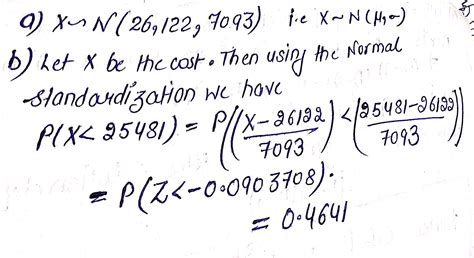 a) X∼N(26,122, 7093) i.e X∼N(μ,σ)
b) Let X be the cost. Then using the Normal
standardization we have
P(X<25481) = P((X-26122)/7093 < (25481-26122)/7093)
= P(Z<-0.0903708).
= 0.4641